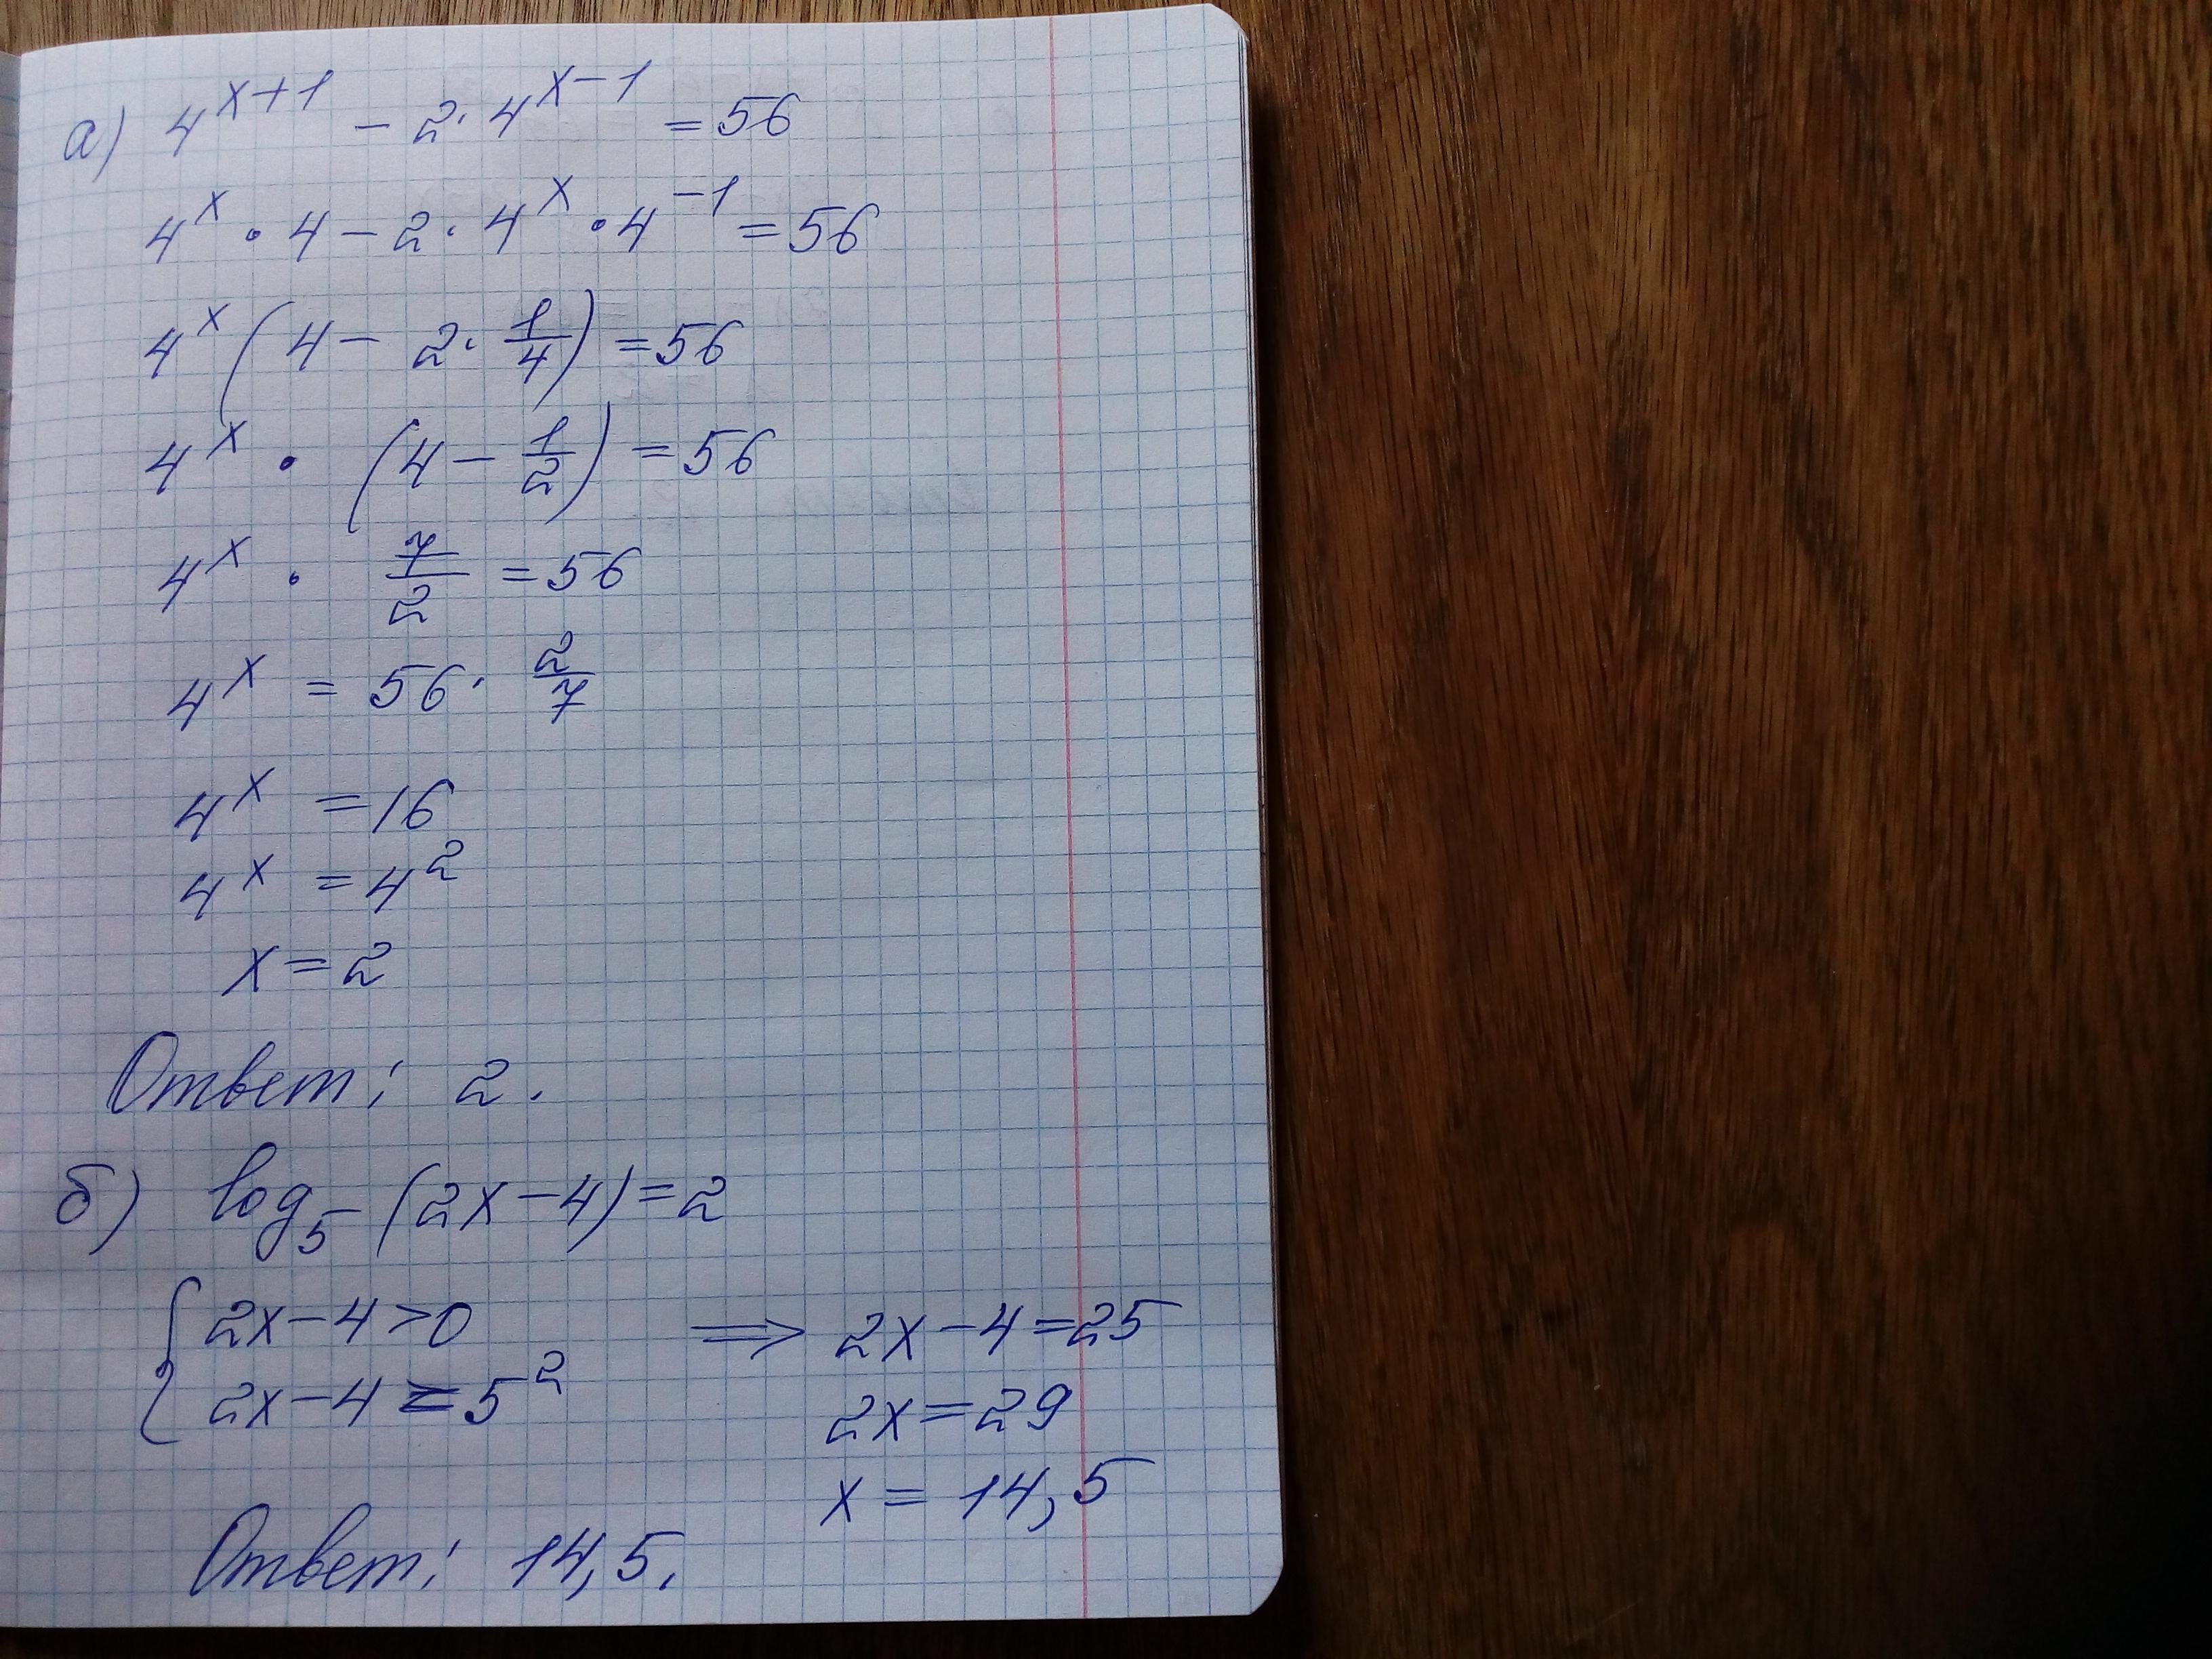 а) 4^{x+1} - 2 · 4^{x-1} = 56
4^x · 4 - 2 · 4^x · 4^{-1} = 56
4^x (4 - 2 · 1/4) = 56
4^x · (4 - 1/2) = 56
4^x · 7/2 = 56
4^x = 56 · 2/7
4^x = 16
4^x = 4^2
x = 2
Ответ: 2.
б) log_5 (2x - 4) = 2
{ 2x - 4 > 0 ⟹ 2x - 4 = 25
2x - 4 = 5^2 2x = 29
x = 14,5
Ответ: 14,5.